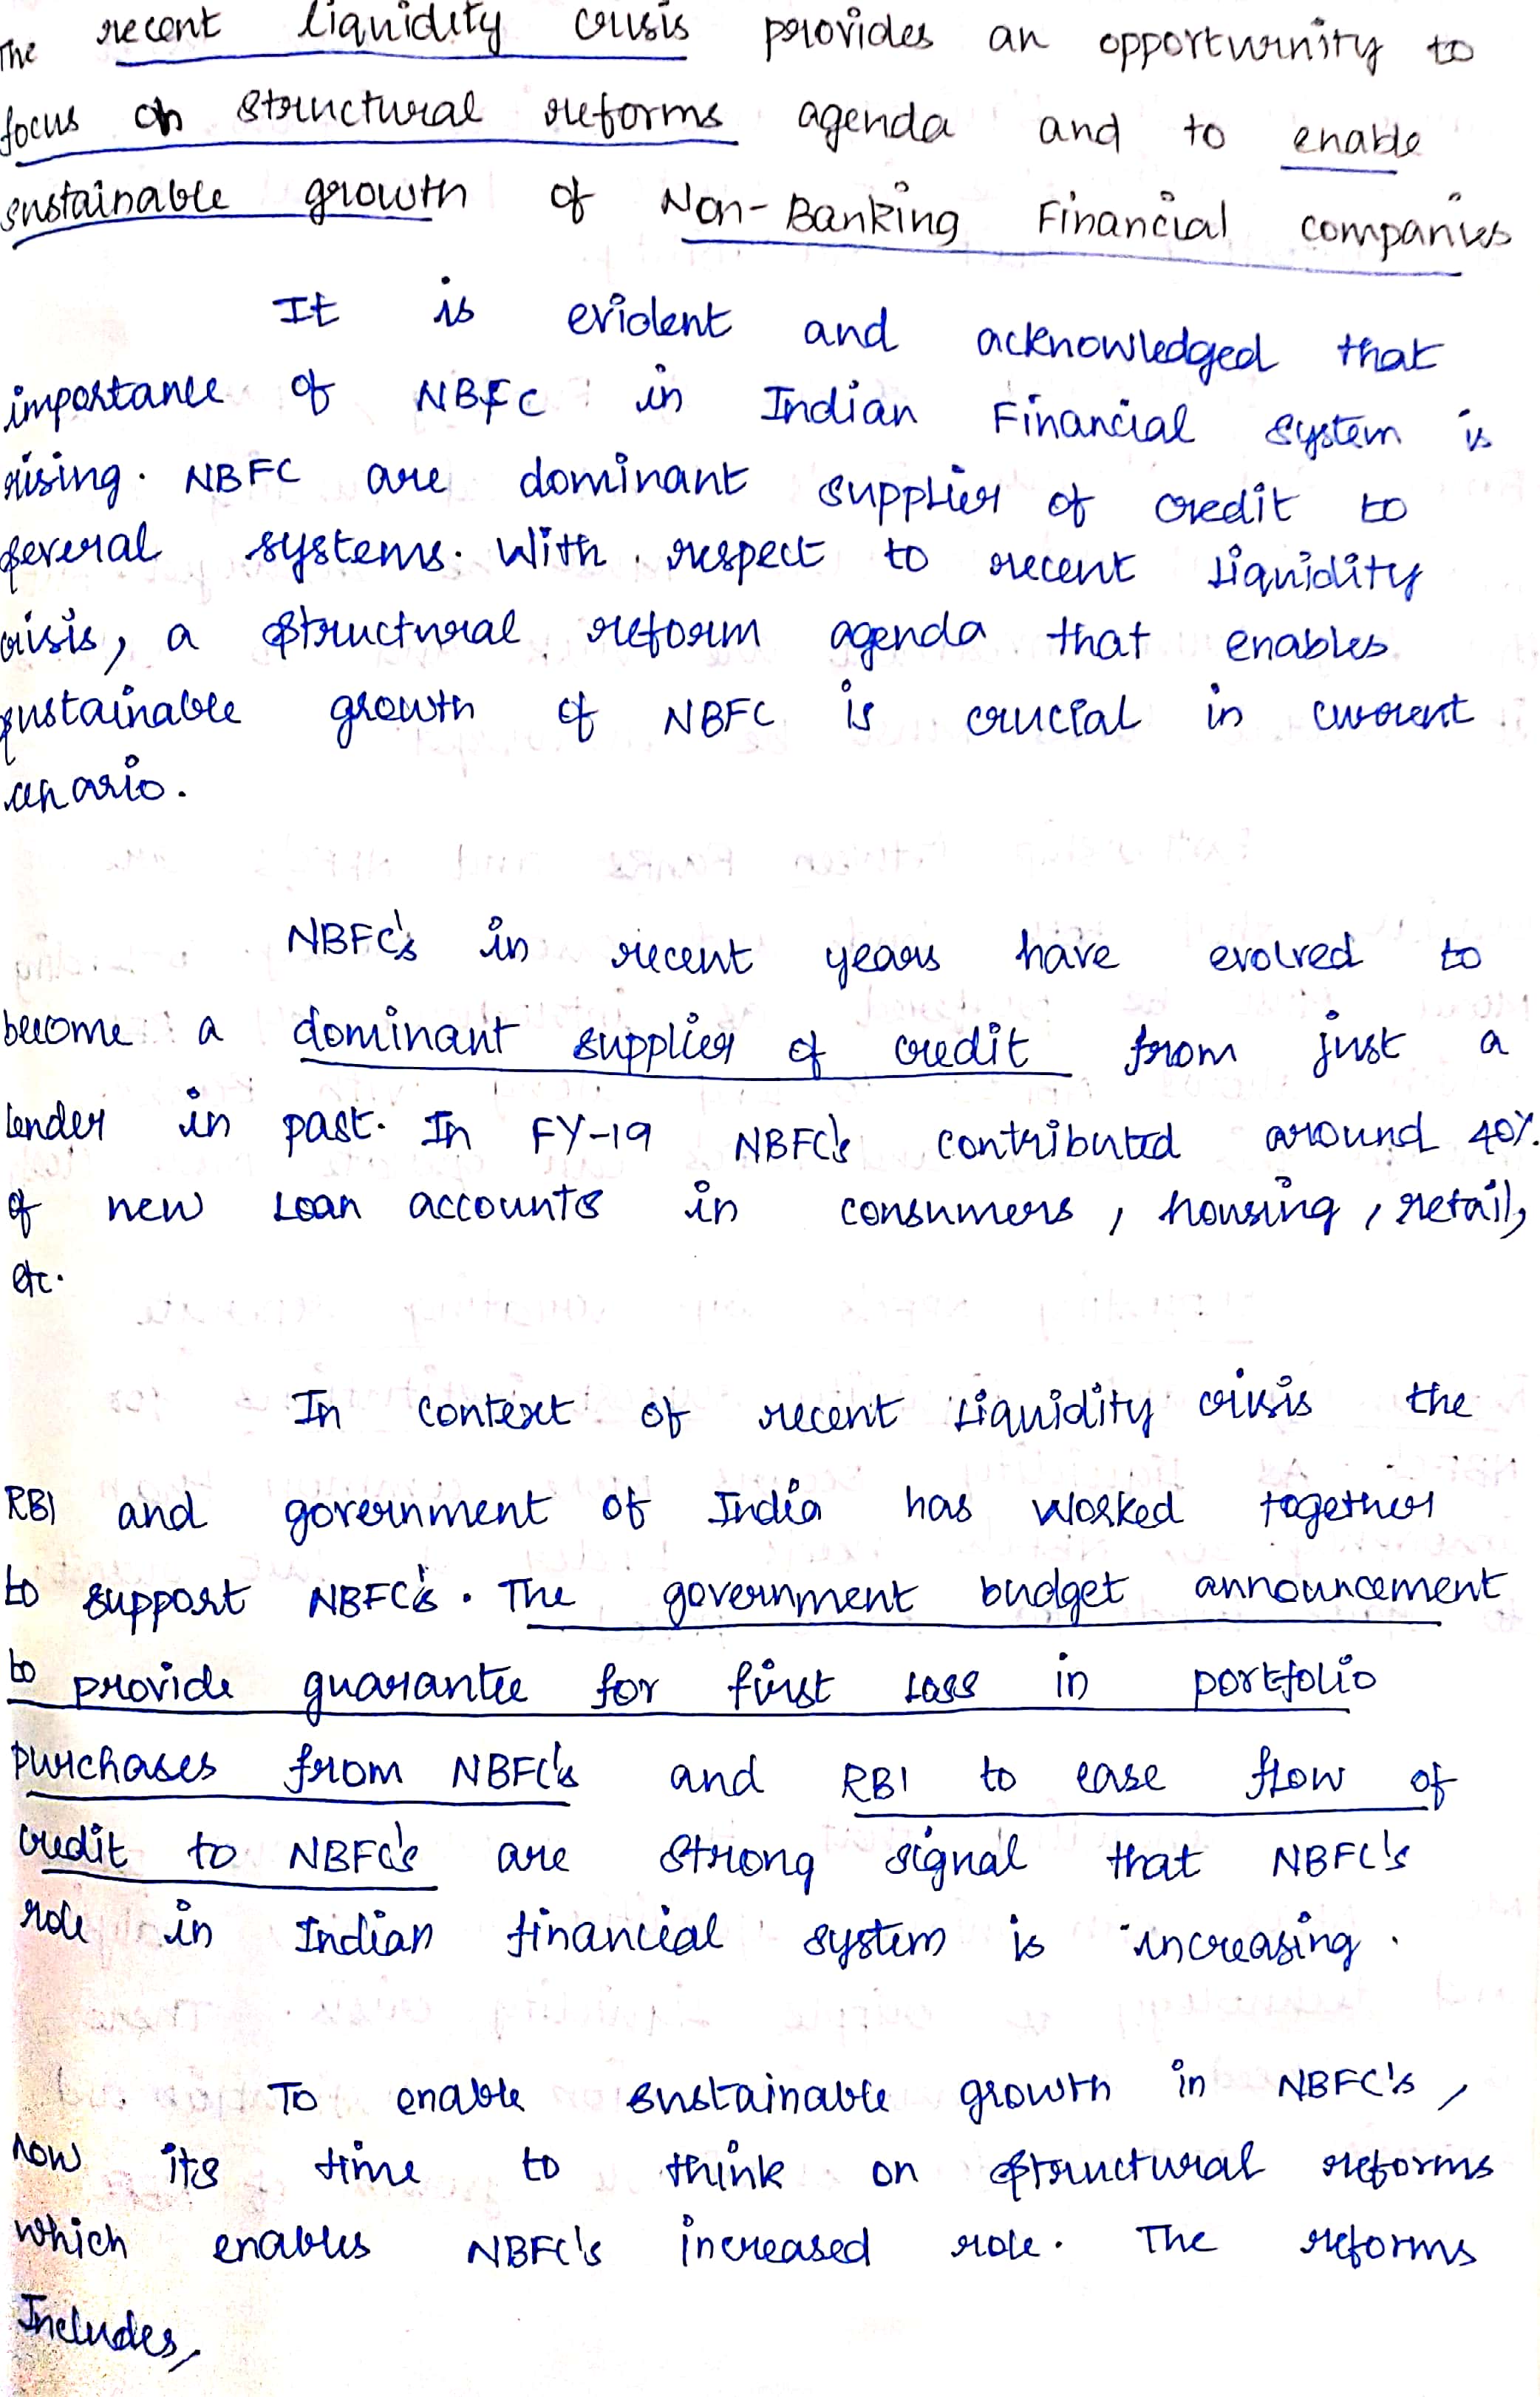 The recent liquidity crisis provides an opportunity to
focus on structural reforms agenda and to enable
sustainable growth of Non-Banking Financial companies
It is evident and acknowledged that
importance of NBFC in Indian Financial system is
rising. NBFC are dominant supplier of credit to
several systems. With respect to recent liquidity
crisis, a structural reform agenda that enables
sustainable growth of NBFC is crucial in current
cenario.
NBFC's in recent years have evolved to
become a dominant supplier of credit from just a
lender in past. In FY-19 NBFC's contributed around 40%
of new loan accounts in consumers, housing, retail,
etc.
In context of recent liquidity crisis the
RBI and government of India has worked together
to support NBFC's. The government budget announcement
to provide guarantee for first loss in portfolio
purchases from NBFC's and RBI to ease flow of
credit to NBFC's are strong signal that NBFC's
role in Indian financial system is increasing.
To enable sustainable growth in NBFC's,
now its time to think on structural reforms
which enables NBFC's increased role. The reforms
Includes,